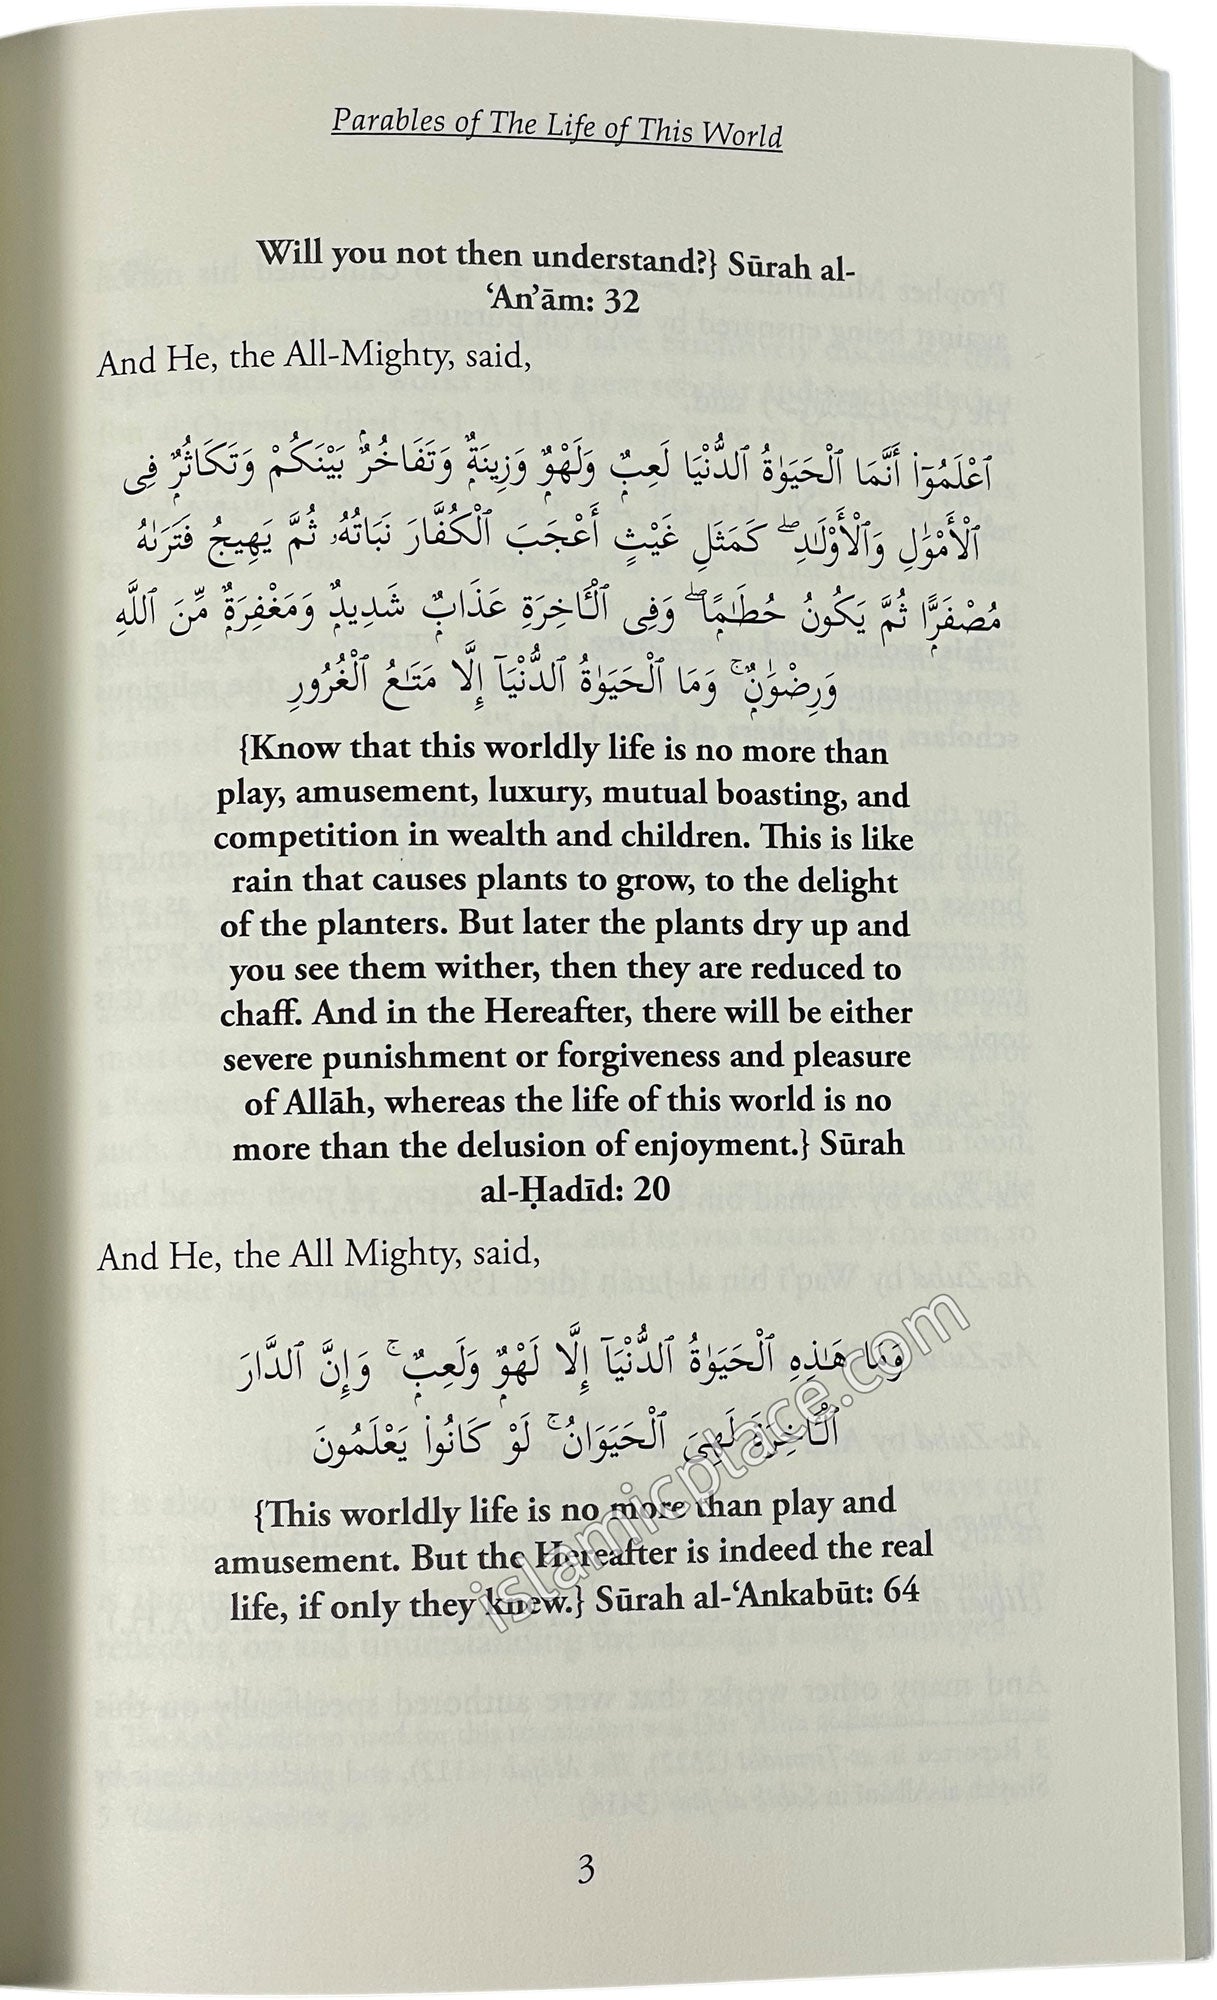 Parables of The Life of This World
Will you not then understand?} Sūrah al-
‘An’ām: 32
And He, the All-Mighty, said,
ٱعْلَمُوٓا۟ أَنَّمَا ٱلْحَيَوٰةُ ٱلدُّنْيَا لَعِبٌ وَلَهْوٌ وَزِينَةٌ وَتَفَاخُرٌۢ بَيْنَكُمْ وَتَكَاثُرٌ فِى
ٱلْأَمْوَٰلِ وَٱلْأَوْلَـٰدِ ۖ كَمَثَلِ غَيْثٍ أَعْجَبَ ٱلْكُفَّارَ نَبَاتُهُۥ ثُمَّ يَهِيجُ فَتَرَىٰهُ
مُصْفَرًّا ثُمَّ يَكُونُ حُطَـٰمًا ۖ وَفِى ٱلْـَٔاخِرَةِ عَذَابٌ شَدِيدٌ وَمَغْفِرَةٌ مِّنَ ٱللَّهِ
وَرِضْوَٰنٌ ۚ وَمَا ٱلْحَيَوٰةُ ٱلدُّنْيَآ إِلَّا مَتَـٰعُ ٱلْغُرُورِ
{Know that this worldly life is no more than
play, amusement, luxury, mutual boasting, and
competition in wealth and children. This is like
rain that causes plants to grow, to the delight
of the planters. But later the plants dry up and
you see them wither, then they are reduced to
chaff. And in the Hereafter, there will be either
severe punishment or forgiveness and pleasure
of Allāh, whereas the life of this world is no
more than the delusion of enjoyment.} Sūrah
al-Ḥadīd: 20
And He, the All Mighty, said,
وَمَا هَـٰذِهِ ٱلْحَيَوٰةُ ٱلدُّنْيَآ إِلَّا لَهْوٌ وَلَعِبٌ ۚ وَإِنَّ ٱلدَّارَ
ٱلْـَٔاخِرَةَ لَهِىَ ٱلْحَيَوَانُ ۚ لَوْ كَانُوا۟ يَعْلَمُونَ
{This worldly life is no more than play and
amusement. But the Hereafter is indeed the real
life, if only they knew.} Sūrah al-‘Ankabūt: 64
islamicplace.com
3